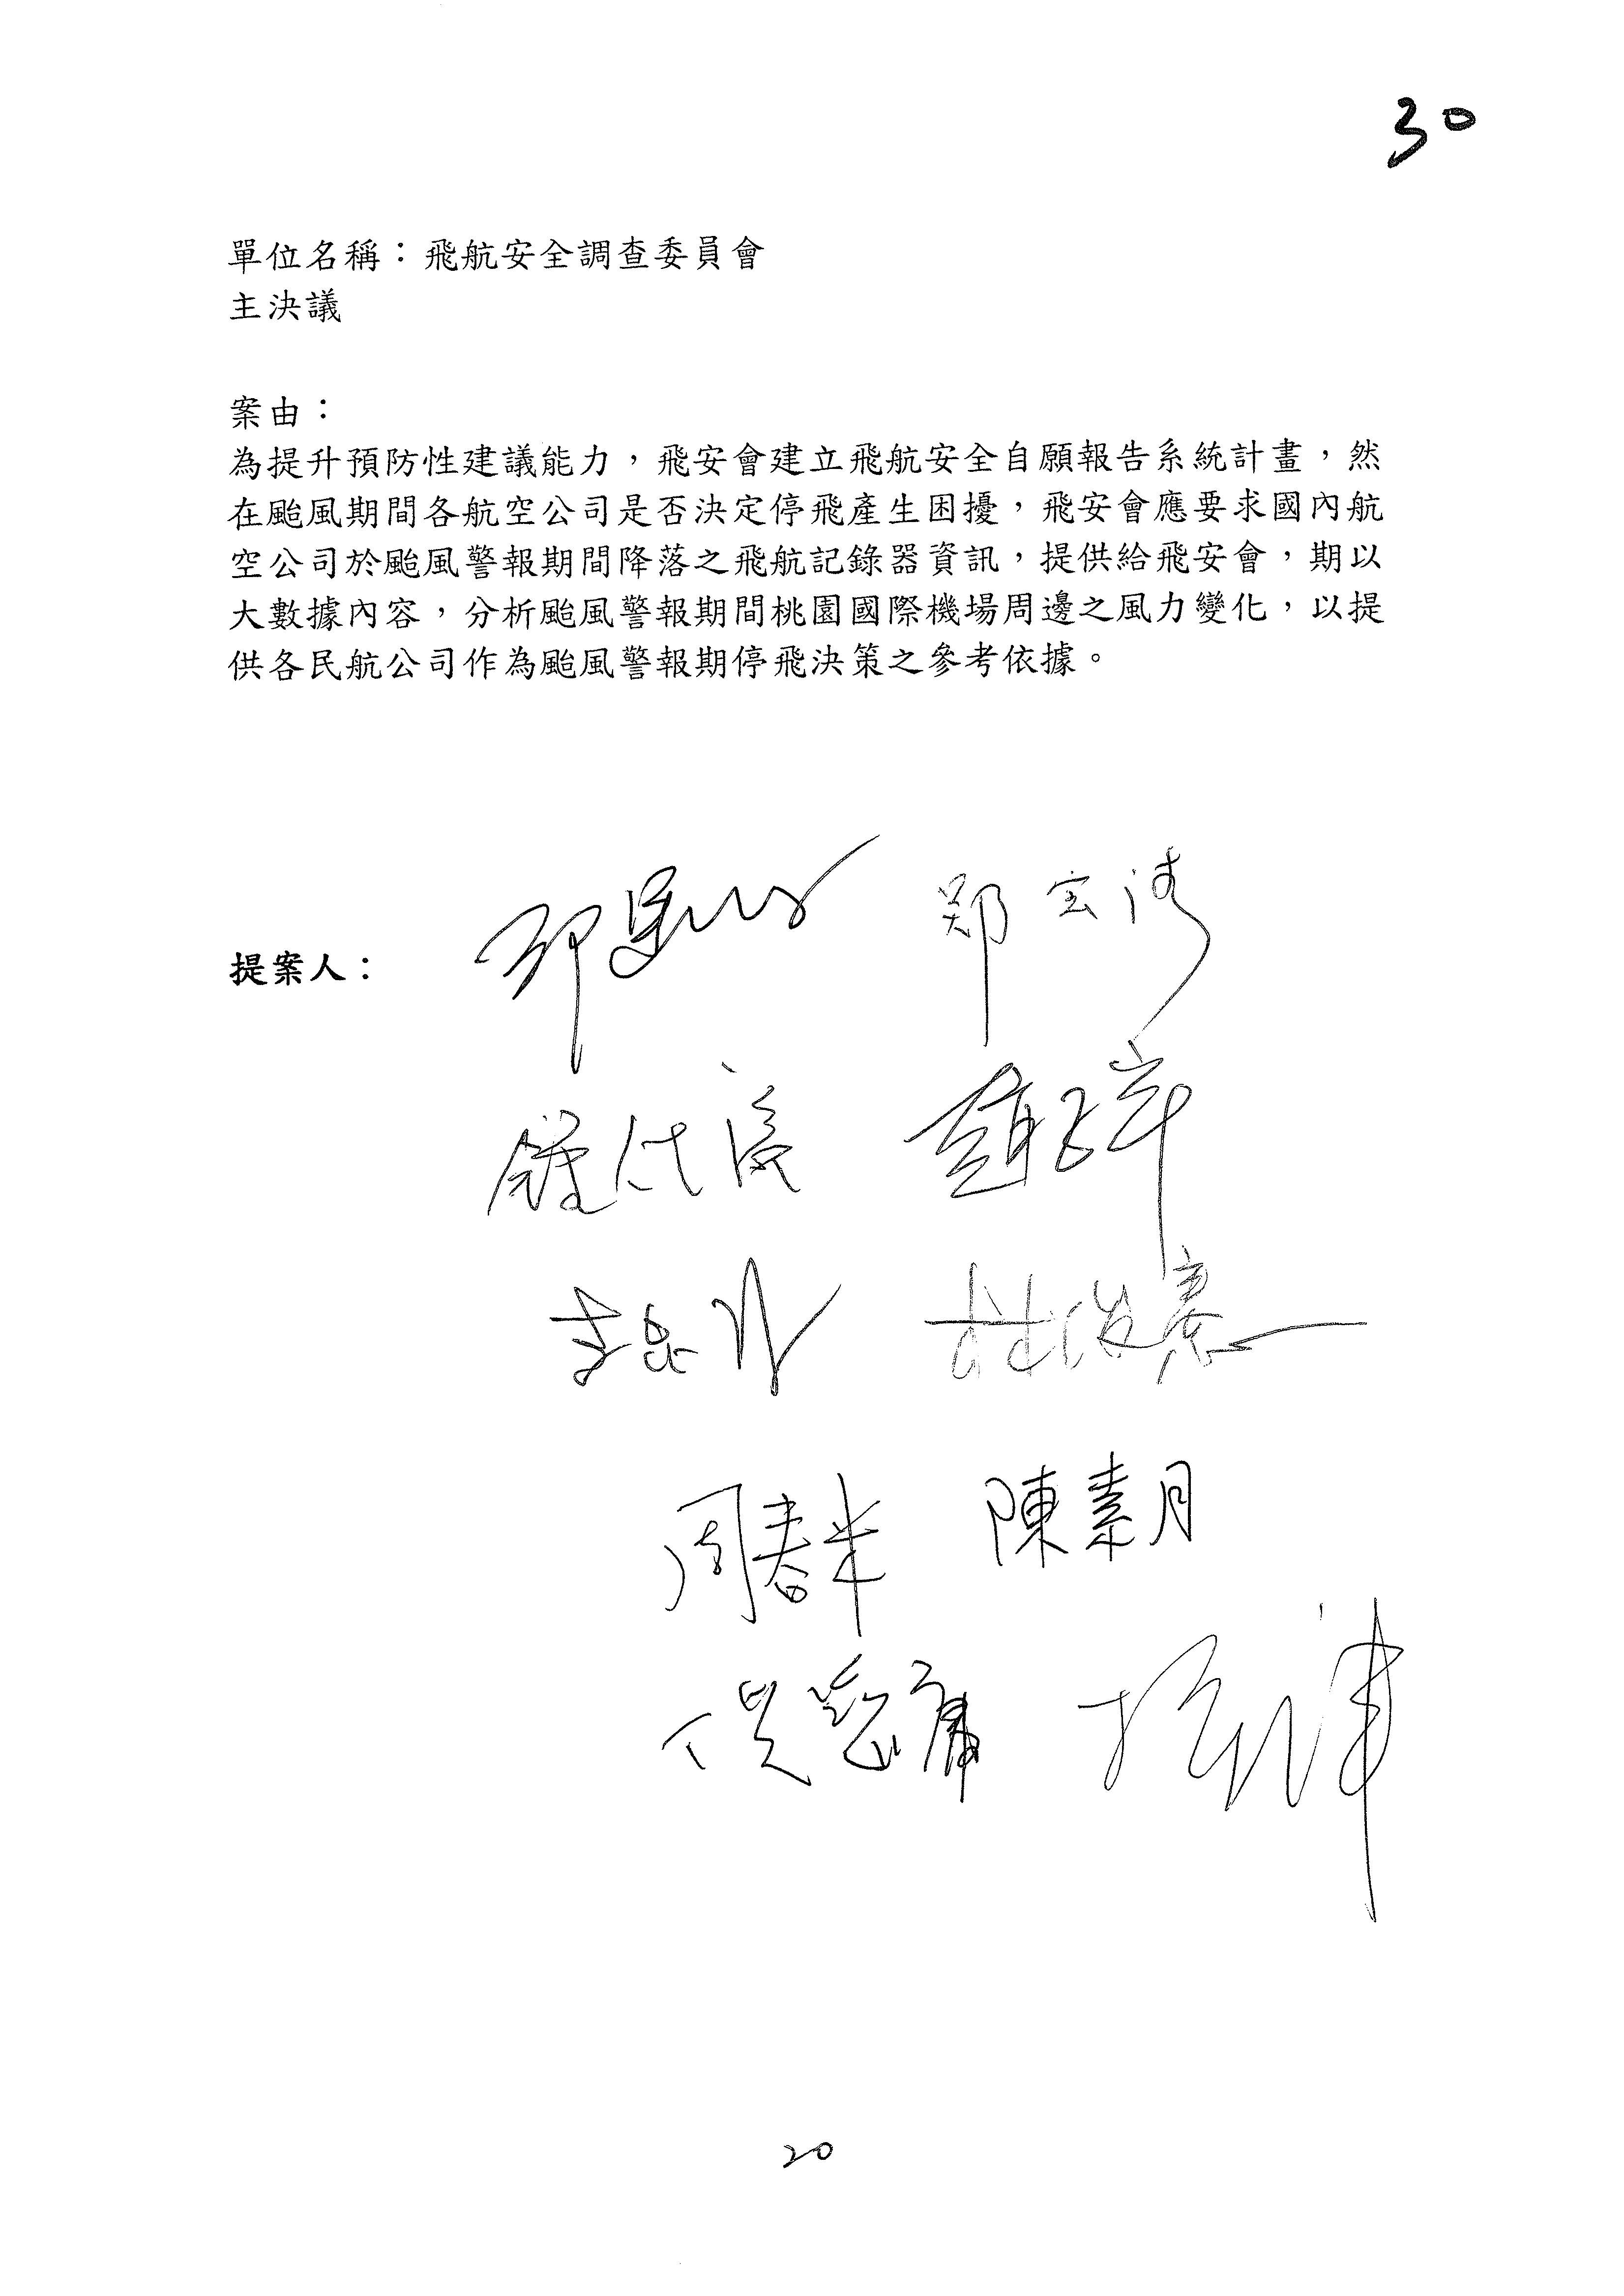 30
單位名稱：飛航安全調查委員會
主決議
案由：
為提升預防性建議能力，飛安會建立飛航安全自願報告系統計畫，然
在颱風期間各航空公司是否決定停飛產生困擾，飛安會應要求國內航
空公司於颱風警報期間降落之飛航記錄器資訊，提供給飛安會，期以
大數據內容，分析颱風警報期間桃園國際機場周邊之風力變化，以提
供各民航公司作為颱風警報期停飛決策之參考依據。
提案人：
鄭宏
周春米 陳素月
20